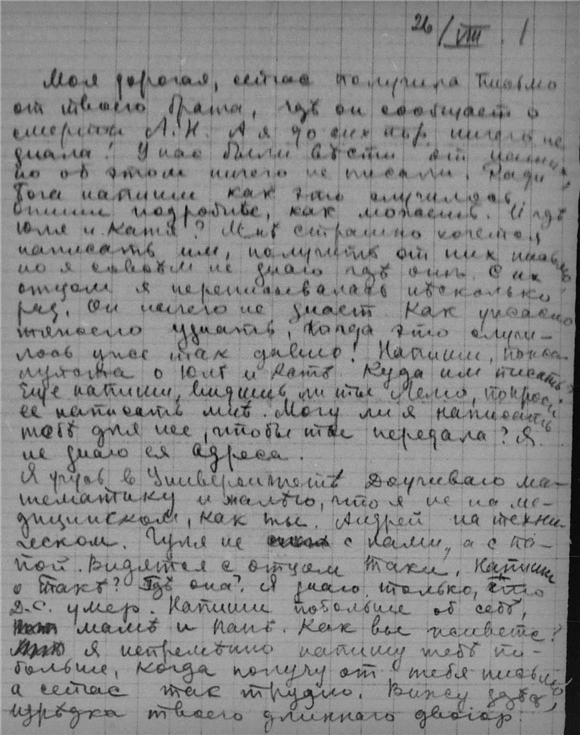 26/VIII.
Моя дорогая, сейчас получила письмо
от твоего брата, гдѣ он сообщает о
смерти Л.Н. А я до сих пор ничего не
знала! У нас были вѣсти от
но об этом ничего не писали. Ради
Бога напиши как это случилось,
опиши подробнѣе, как можешь. И гдѣ
Юля и Катя? Мнѣ страшно хочется
написать им, получить от них письмо
но я совсѣм не знаю гдѣ онѣ. С их
отцом я переписывалась нѣсколько
раз. Он ничего не знает. Как ужасно
тяжело узнать, когда это случи-
лось уже так давно! Напиши, пожа-
луйста о Юлѣ и Катѣ. Куда им писать?
Еще напиши, видишь ли ты Лелю, попроси
ее написать мнѣ. Могу ли я написать
тебѣ для нее, чтобы ты передала? Я
не знаю ея адреса.
Я учусь в Университетѣ. Доучиваю ма-
тематику и жалѣю, что я не на ме-
дицинском, как ты. Андрей на техни-
ческом. Гуля не с нами, а с па-
пой. Видятся с отцом Таки. Напиши
о Такѣ? Гдѣ она? Я знаю только, что
Д.С. умер. Напиши побольше об себѣ,
мамѣ и папѣ. Как вы живете?
Я непремѣнно напишу тебѣ по-
больше, когда получу от тебя письмо,
а сейчас так трудно. Вижу здѣсь
изрѣдка твоего длинного двоюр.